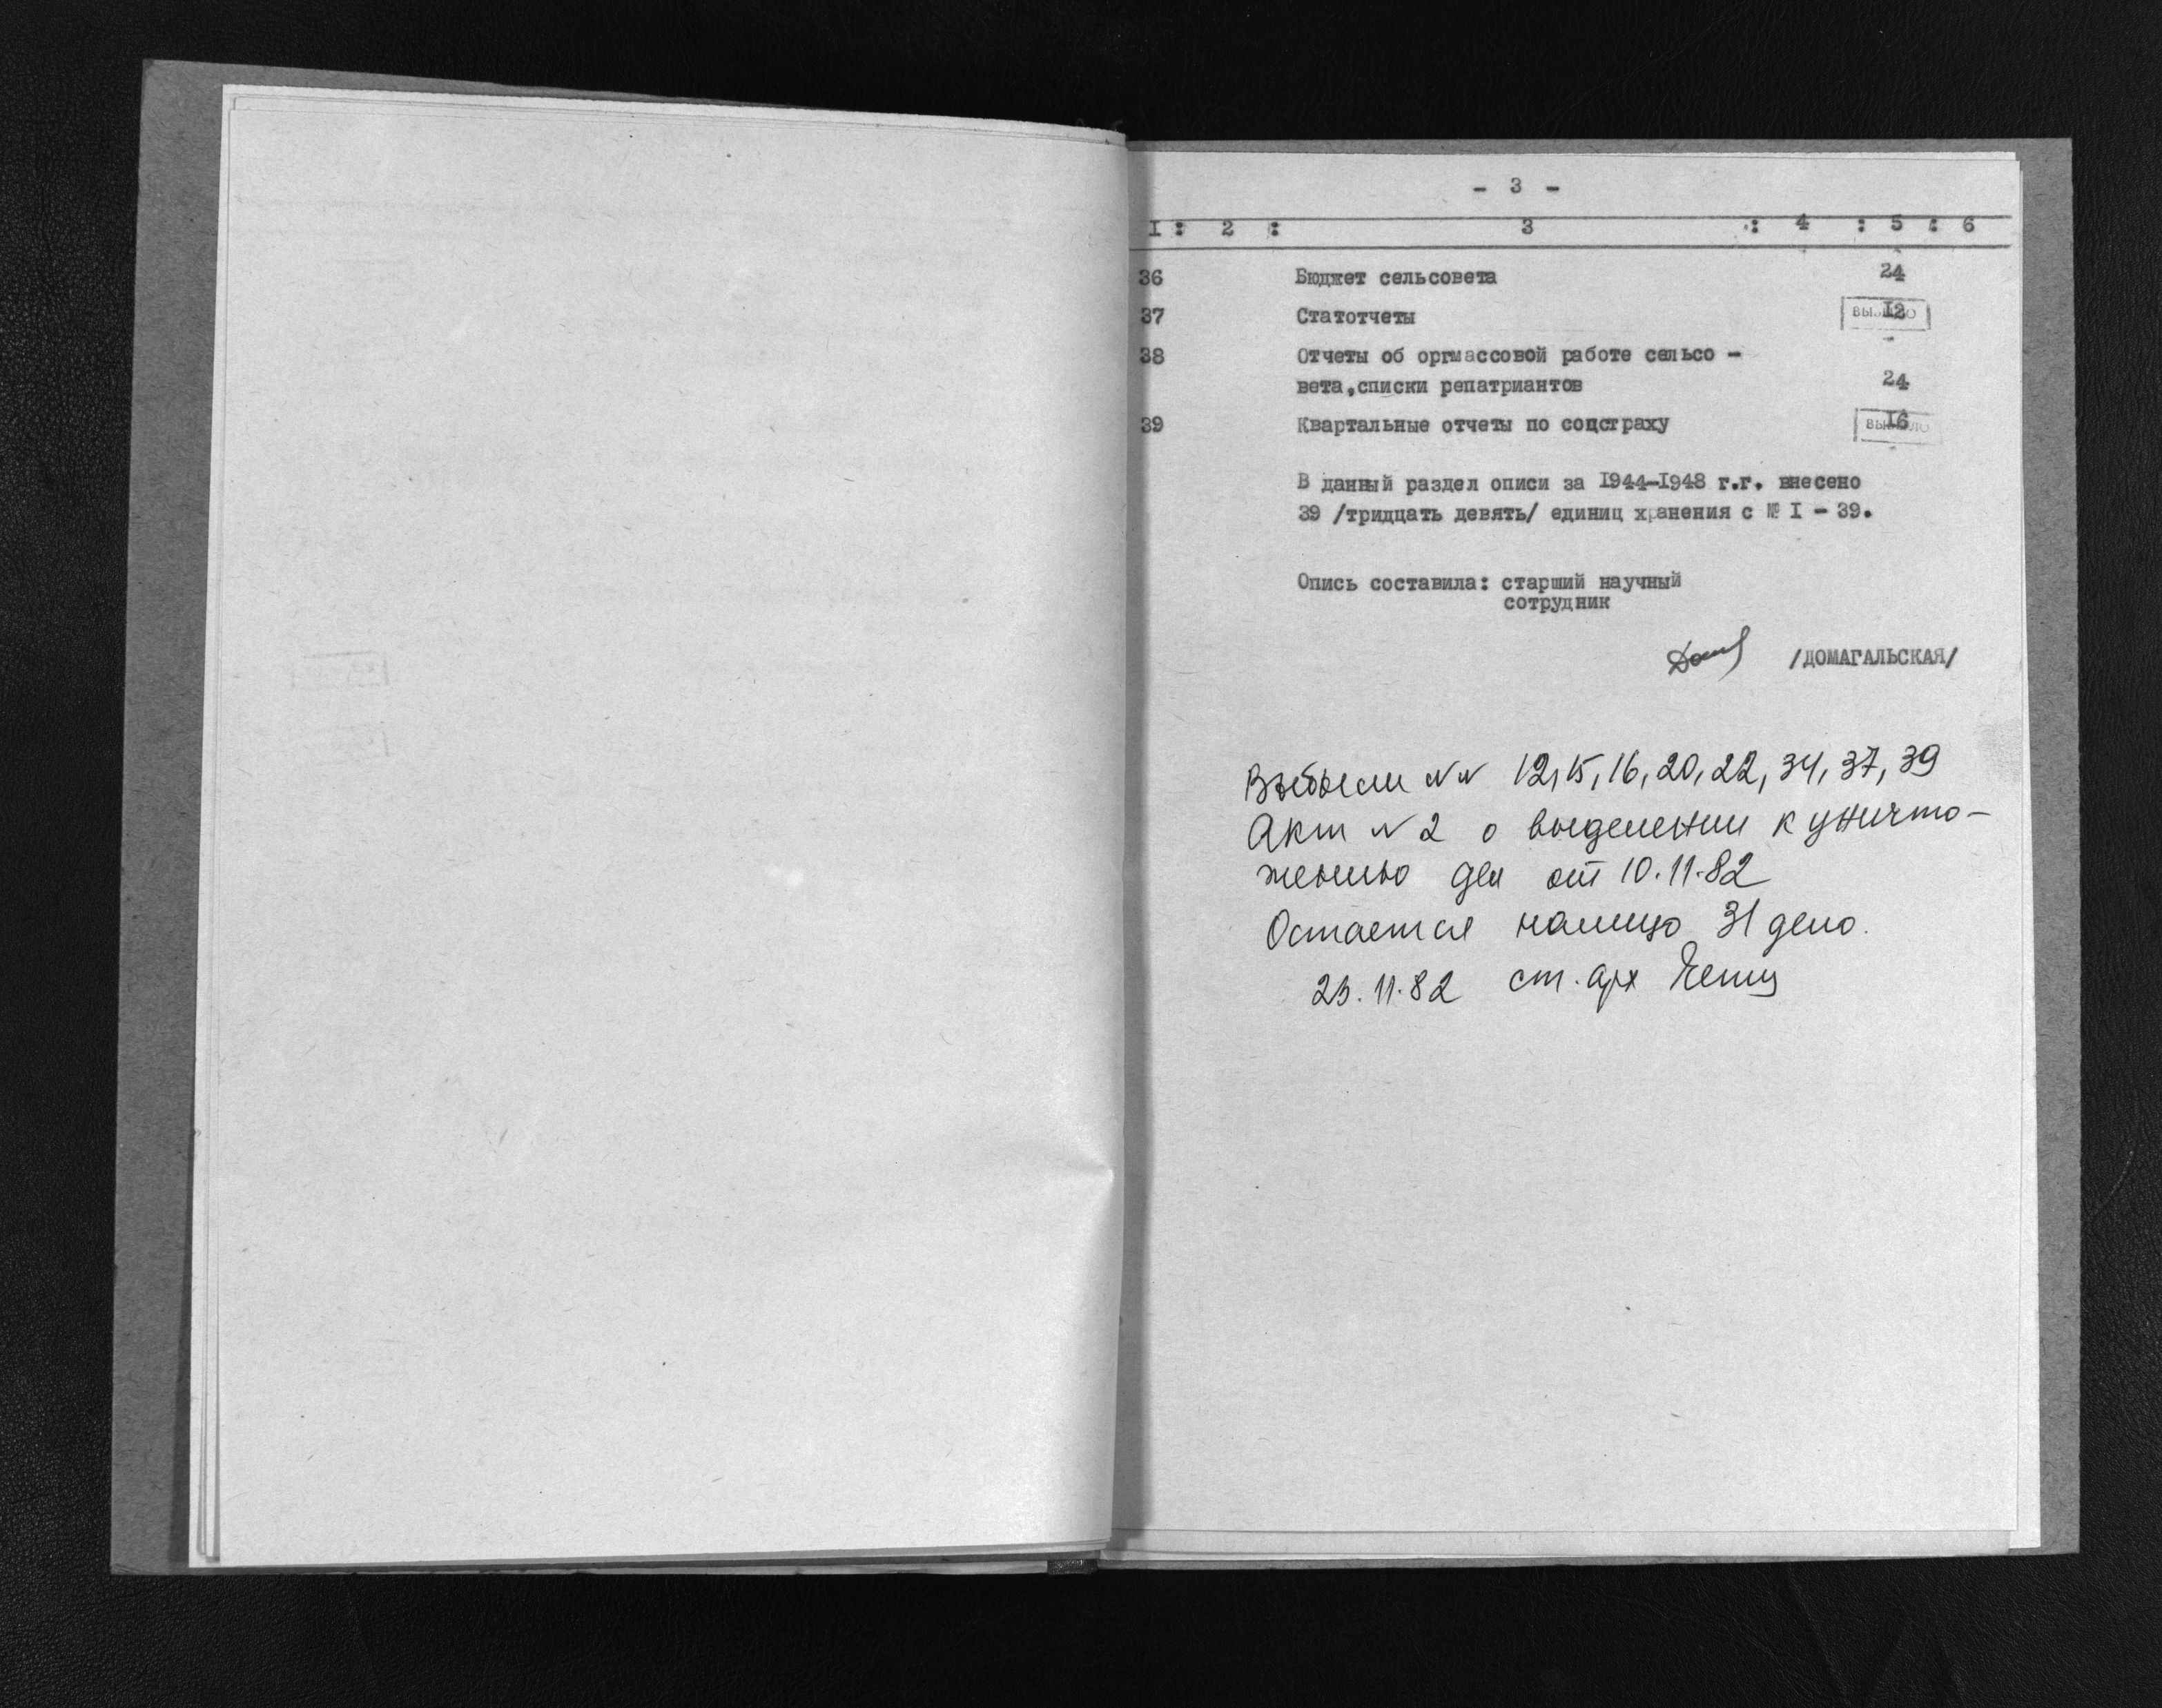 - 3 -
I : 2 : 3 : 4 : 5 : 6
36 Бюджет сельсовета 24
37 Статотчеты 12
ВЫБЫЛО
38 Отчеты об оргмассовой работе сельсо -
вета,списки репатриантов 24
39 Квартальные отчеты по соцстраху 16
ВЫБЫЛО
В данный раздел описи за 1944-1948 г.г. внесено
39 /тридцать девять/ единиц хранения с № I - 39.
Опись составила: старший научный
сотрудник
/ДОМАГАЛЬСКАЯ/
Выбыли NN 12, 15, 16, 20, 22, 34, 37, 39
Акт N 2 о выделении к уничто-
жению дел от 10.11.82
Остается налицо 31 дело.
23.11.82 ст. арх